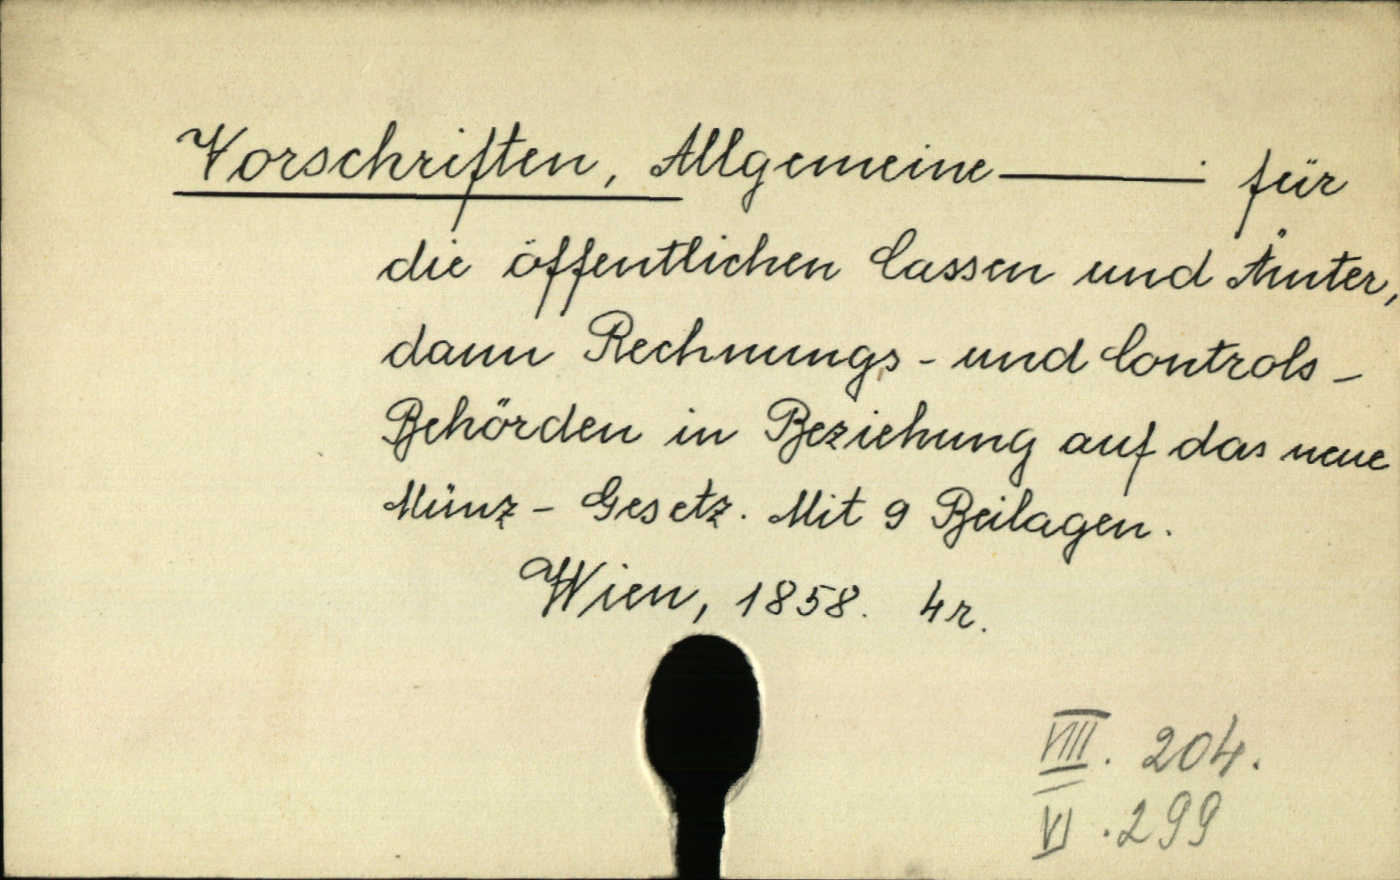 Vorschriften, Allgemeine ——— für
die öffentlichen Cassen und Ämter,
dann Rechnungs - und Controls -
Behörden in Beziehung auf das neue
Münz - Gesetz. Mit 9 Beilagen.
Wien, 1858. 4r.
VIII. 204.
VI. 299